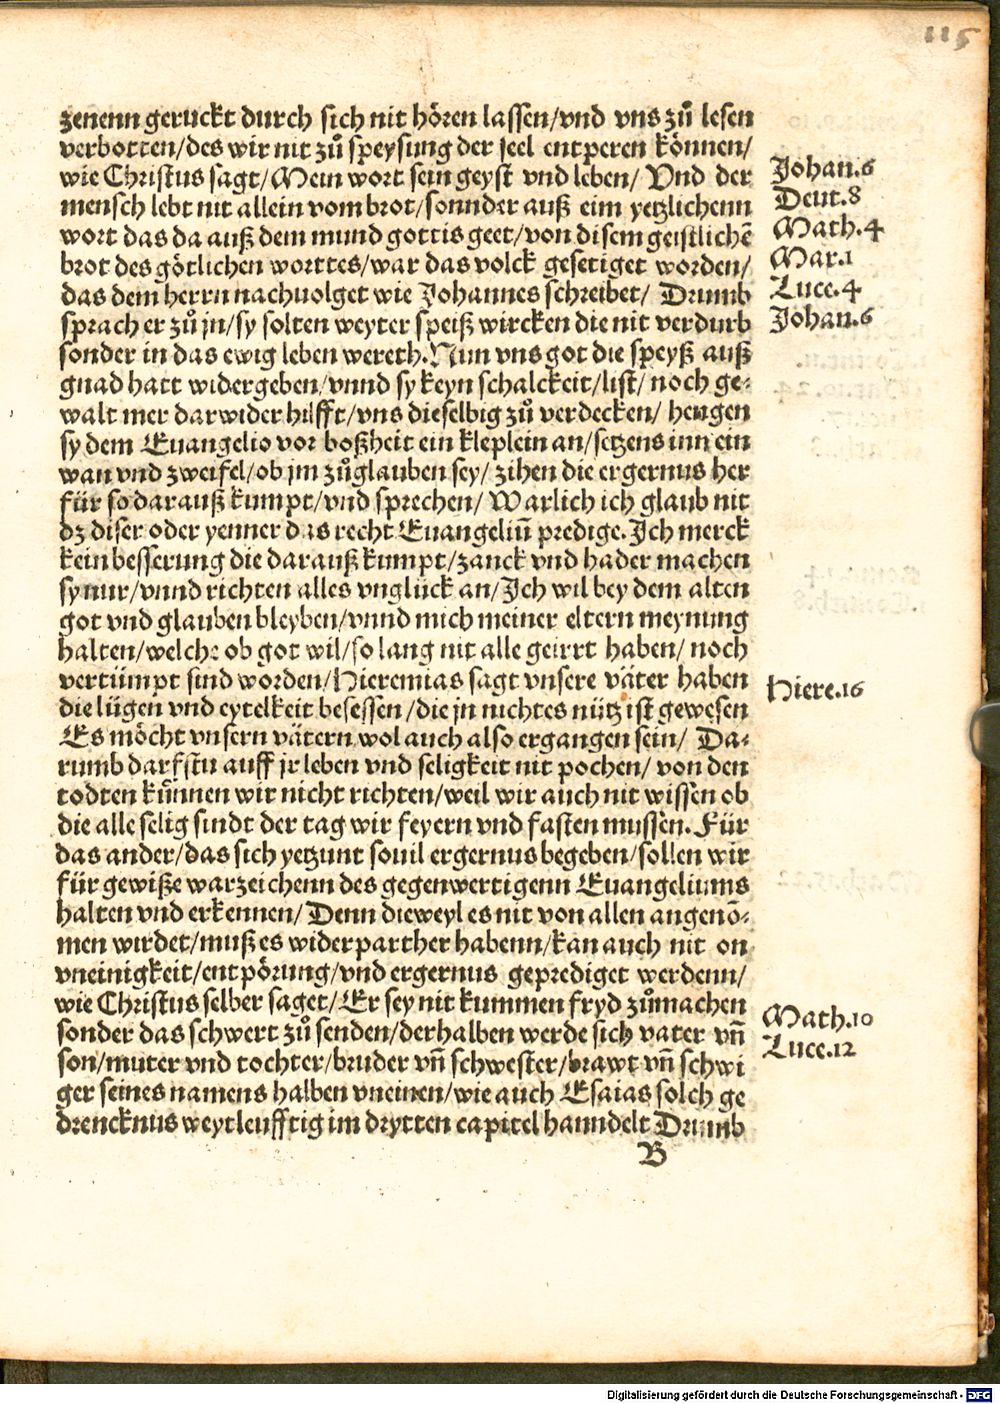 115
zenenn geruckt durch sich nit hören lassen/vnd vns zů lesen
verbotten/des wir nit zů speysung der seel entperen können/
wie Christus sagt/Mein wort sein geyst vnd leben/ Vnd der
mensch lebt nit allein vom brot/sonnder auß eim yetzlichenn
wort das da auß dem mund gottis geet/von disem geistlichē
brot des götlichen worttes/war das volck gesetiget worden/
das dem herrn nachuolget wie Johannes schreibet/ Drumb
sprach er zů jn/sy solten weyter speiß wircken die nit verdurb
sonder in das ewig leben wereth. Nun vns got die speyß auß
gnad hatt widergeben/vnnd sy keyn schalckeit/list/ noch ge-
walt mer darwider hilfft/vns dieselbig zů verdecken/ hengen
sy dem Euangelio vor boßheit ein kleplein an/setzens inn ein
wan vnd zweifel/ob jm zůglauben sey/ zihen die ergernus her
für so darauß kumpt/vnd sprechen/ Warlich ich glaub nit
dz diser oder yenner das recht Euangeliū predige. Ich merck
kein besserung die darauß kumpt/zanck vnd hader machen
sy nur/vnnd richten alles vnglück an/Ich wil bey dem alten
got vnd glauben bleyben/vnnd mich meiner eltern meynung
halten/welche ob got wil/so lang nit alle geirrt haben/ noch
vertümpt sind worden/Hieremias sagt vnsere väter haben
die lügen vnd eytelkeit besessen/die jn nichtes nütz ist gewesen
Es möcht vnsern vätern wol auch also ergangen sein/ Da-
rumb darfstu auff jr leben vnd seligkeit nit pochen/ von den
todten kůnnen wir nicht richten/weil wir auch nit wissen ob
die alle selig sindt der tag wir feyern vnd fasten mussen. Für
das ander/das sich yetzunt souil ergernus begeben/sollen wir
für gewiße warzeichenn des gegenwertigenn Euangeliums
halten vnd erkennen/ Denn dieweyl es nit von allen angenō-
men wirdet/muß es widerparther habenn/kan auch nit on
vneinigkeit/entpörung/vnd ergernus geprediget werdenn/
wie Christus selber saget/Er sey nit kummen fryd zůmachen
sonder das schwert zů senden/derhalben werde sich vater vn̄
son/muter vnd tochter/bruder vn̄ schwester/brawt vn̄ schwi
ger seines namens halben vneinen/wie auch Esaias solch ge
drencknus weytleufftig im drytten capitel hanndelt Drumb
B
Johan.6
Deut.8
Math.4
Mar.1
Luce.4
Johan.6
Hiere.16
Math.10
Luce.12
Digitalisierung gefördert durch die Deutsche Forschungsgemeinschaft - DFG